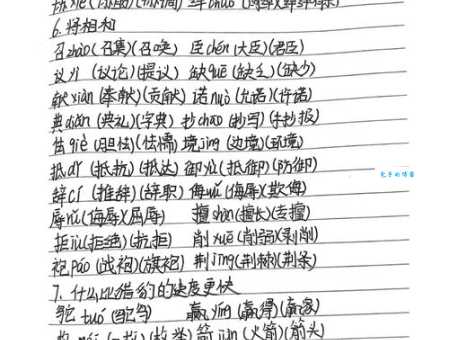 6.将相和
召zhào(召集)(召唤) 臣chén(大臣)(君臣)
议yì (议论)(提议) 缺quē(缺乏)(缺少)
献xiàn(奉献)(贡献) 诺nuò(允诺)(许诺)
典diǎn(典礼)(字典) 抄chāo(抄写)(手抄报)
怯qiè (胆怯)(怯懦) 境jìng(边境)(环境)
抵dǐ (抵抗)(抵达) 御yù(抵御)(防御)
辞cí (推辞)(辞职) 侮wǔ(侮辱)(欺侮)
辱rǔ(侮辱)(屈辱) 擅shàn(擅长)(专擅)
拒jù(拒绝)(抗拒) 削xuē(削弱)(剥削)
袍páo(战袍)(旗袍) 荆jīng(荆棘)(荆条)
7、什么比猎豹的速度更快
鸵 tuó (鸵鸟) 赢yíng(赢得)(赢家)
箭jiàn(火箭)(箭头)